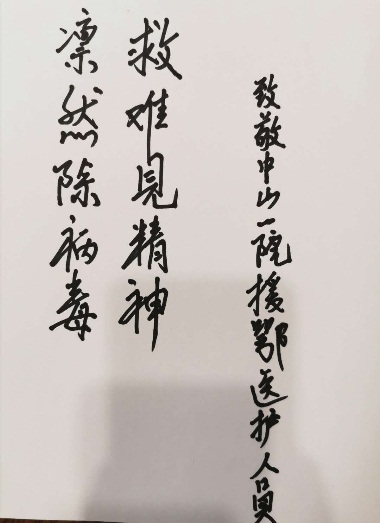 致敬中山一院援鄂医护人员
救难见精神
凛然除病毒